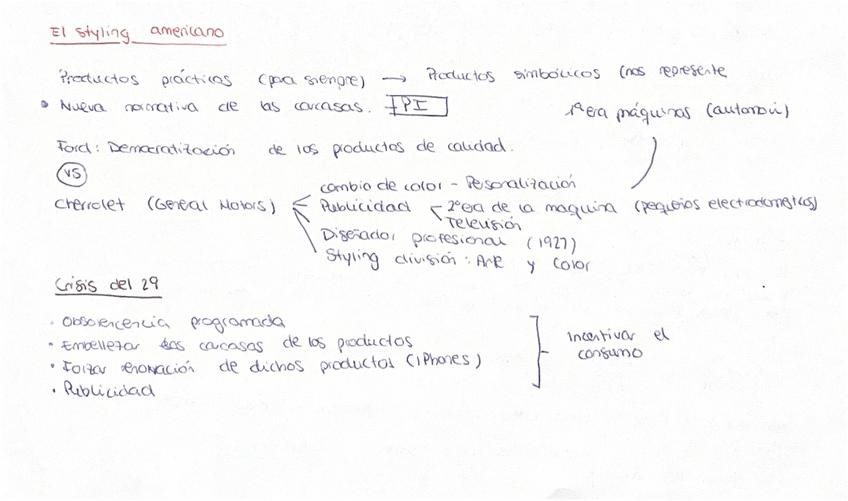 El styling americano
Productos prácticos (para siempre) → Productos simbólicos (nos represente
• Nueva normativa de las carcasas. PI
1ª era máquinas (automovil)
Ford: Democratización de los productos de calidad.
VS
Chevrolet (General Motors)
cambio de color - Personalización
Publicidad
2ª era de la maquina (pequeños electrodomesticos)
Televisión
Diseñador profesional (1927)
Styling división: Arte y Color
Crisis del 29
· Obsolercencia programada
• Embellezar las carcasas de los productos
• Forzar renovación de dichos productos (iPhones)
• Publicidad
Incentivar el
consumo